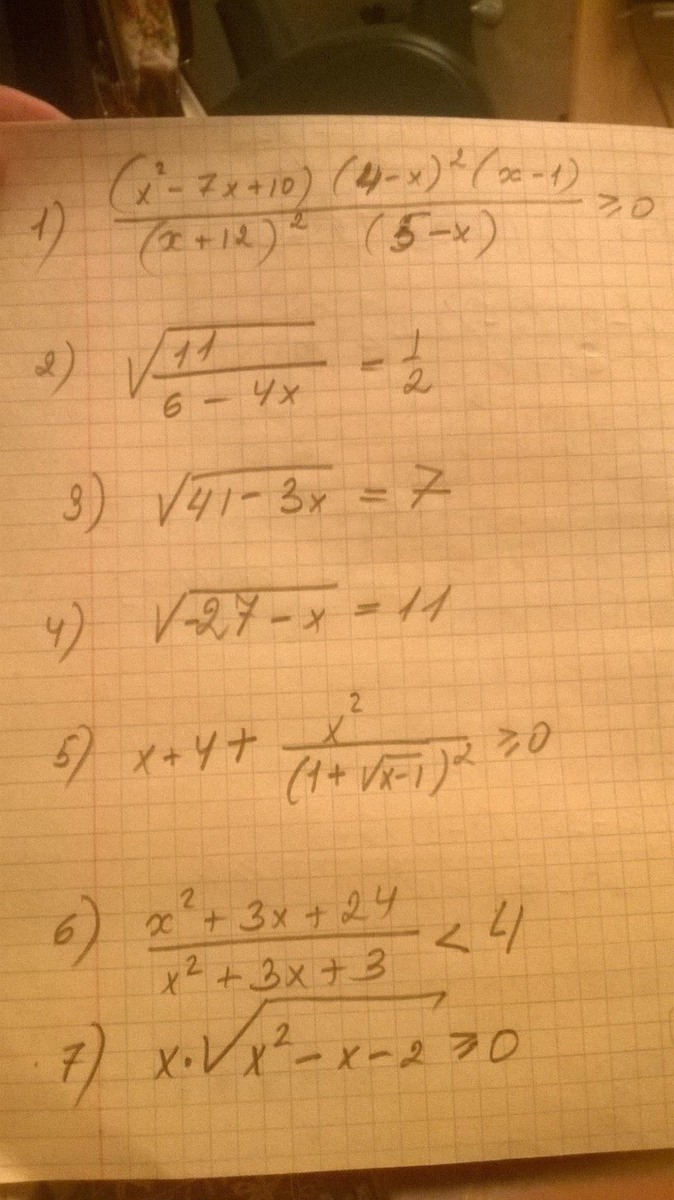 1) \frac{(x^2 - 7x + 10) (4 - x)^2 (x - 1)}{(x + 12)^2 (5 - x)} ≥ 0
2) \sqrt{\frac{11}{6 - 4x}} = \frac{1}{2}
3) \sqrt{41 - 3x} = 7
4) \sqrt{-27 - x} = 11
5) x + 4 + \frac{x^2}{(1 + \sqrt{x - 1})^2} ≥ 0
6) \frac{x^2 + 3x + 24}{x^2 + 3x + 3} < 4
7) x \cdot \sqrt{x^2 - x - 2} ≥ 0